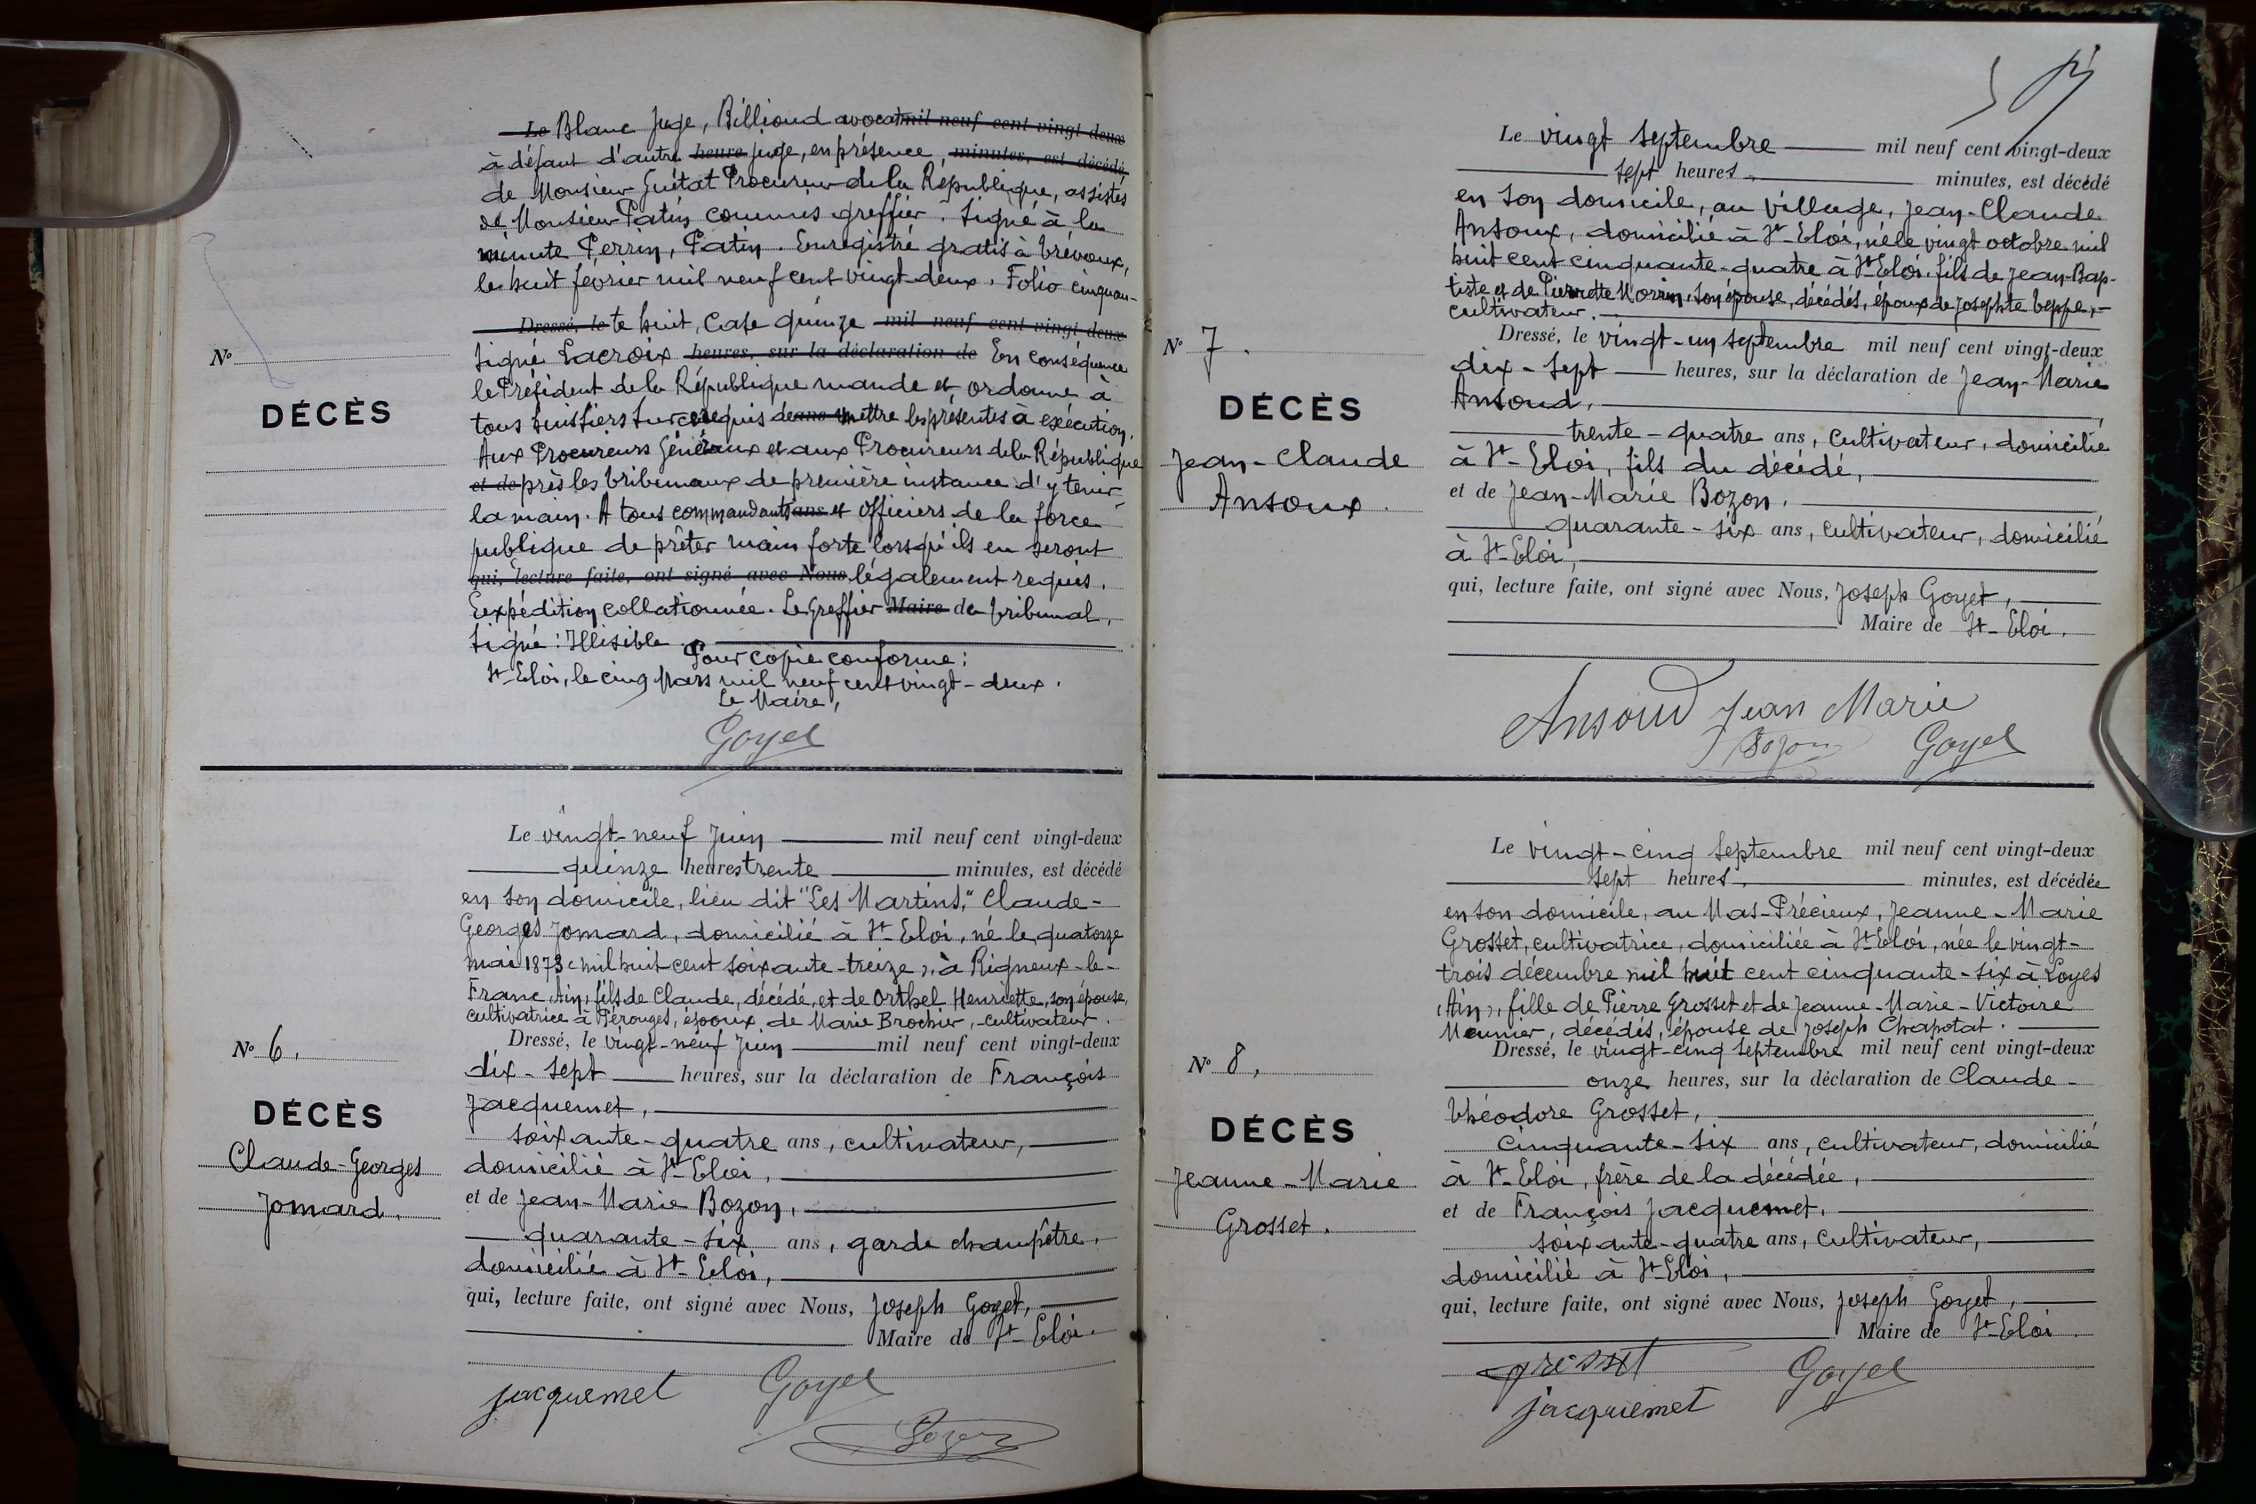 Le Blanc Juge, Billioud avocat mil neuf cent vingt-deux
à défaut d'autre heure juge, en présence, minutes, est décédé,
de Monsieur Guétat Procureur de la République, assistés
de Monsieur Patin commis greffier. Signé à la
minute Perrin, Patin. Enregistré gratis à Trévoux,
le huit février mil neuf cent vingt-deux. Folio cinquan-
Dressé, le te huit, Case quinze mil neuf cent vingt-deux
Signé Lacroix heures, sur la déclaration de En conséquence
le Président de la République mande et ordonne à
tous huissiers sur ce requis de ans mettre les présentes à exécution.
Aux Procureurs Généraux et aux Procureurs de la République
et de près les Tribunaux de première instance d'y tenir
la main. A tous commandants ans et officiers de la force
publique de prêter main forte lorsqu'ils en seront
qui, lecture faite, ont signé avec Nous légalement requis.
Expédition collationnée. Le Greffier Maire de Tribunal,
Signé: Illisible.
Pour copie conforme:
St-Eloi, le cinq Mars mil neuf cent vingt-deux.
Le Maire,
Goyet
No
DÉCÈS
Le vingt-neuf Juin mil neuf cent vingt-deux
quinze heures trente minutes, est décédé
en son domicile, lieu dit "Les Martins," Claude-
Georges Jomard, domicilié à St-Eloi, né le quatorze
mai 1873 (mil huit cent soixante-treize), à Rigneux-le-
Franc (Ain), fils de Claude, décédé, et de Orthel Henriette, son épouse,
cultivatrice à Pérouges, époux de Marie Brochier, cultivateur.
Dressé, le vingt-neuf Juin mil neuf cent vingt-deux
dix-sept heures, sur la déclaration de François
Jacquemet,
soixante-quatre ans, cultivateur,
domicilié à St-Eloi,
et de Jean-Marie Bozon,
quarante-six ans, garde champêtre,
domicilié à St-Eloi,
qui, lecture faite, ont signé avec Nous, Joseph Goyet,
Maire de St-Eloi.
No 6.
DÉCÈS
Claude-Georges
Jomard.
jacquemet Goyet
Bozon
Le vingt septembre mil neuf cent vingt-deux
sept heures, minutes, est décédé
en son domicile, au Village, Jean-Claude
Ansoux, domicilié à St-Eloi, né le vingt octobre mil
huit cent cinquante-quatre à St-Eloi, fils de Jean-Bap-
tiste et de Pierrette Morin, son épouse, décédés, époux de Josephte Teppe,
cultivateur.
Dressé, le vingt-un septembre mil neuf cent vingt-deux
dix-sept heures, sur la déclaration de Jean-Marie
Ansoud,
trente-quatre ans, cultivateur, domicilié
à St-Eloi, fils du décédé,
et de Jean-Marie Bozon,
quarante-six ans, cultivateur, domicilié
à St-Eloi,
qui, lecture faite, ont signé avec Nous, Joseph Goyet,
Maire de St-Eloi.
No 7.
DÉCÈS
Jean-Claude
Ansoux.
Ansoud Jean Marie
Bozon Goyet
Le vingt-cinq septembre mil neuf cent vingt-deux
sept heures, minutes, est décédée
en son domicile, au Mas-Précieux, Jeanne-Marie
Grosset, cultivatrice, domiciliée à St-Eloi, née le vingt-
trois décembre mil huit cent cinquante-six à Loyes
(Ain), fille de Pierre Grosset et de Jeanne-Marie-Victoire
Meunier, décédés, épouse de Joseph Chapotat.
Dressé, le vingt-cinq septembre mil neuf cent vingt-deux
onze heures, sur la déclaration de Claude-
Théodore Grosset,
cinquante-six ans, cultivateur, domicilié
à St-Eloi, frère de la décédée,
et de François Jacquemet,
soixante-quatre ans, cultivateur,
domicilié à St-Eloi,
qui, lecture faite, ont signé avec Nous, Joseph Goyet,
Maire de St-Eloi.
No 8,
DÉCÈS
Jeanne-Marie
Grosset.
grosset Goyet
jacquemet